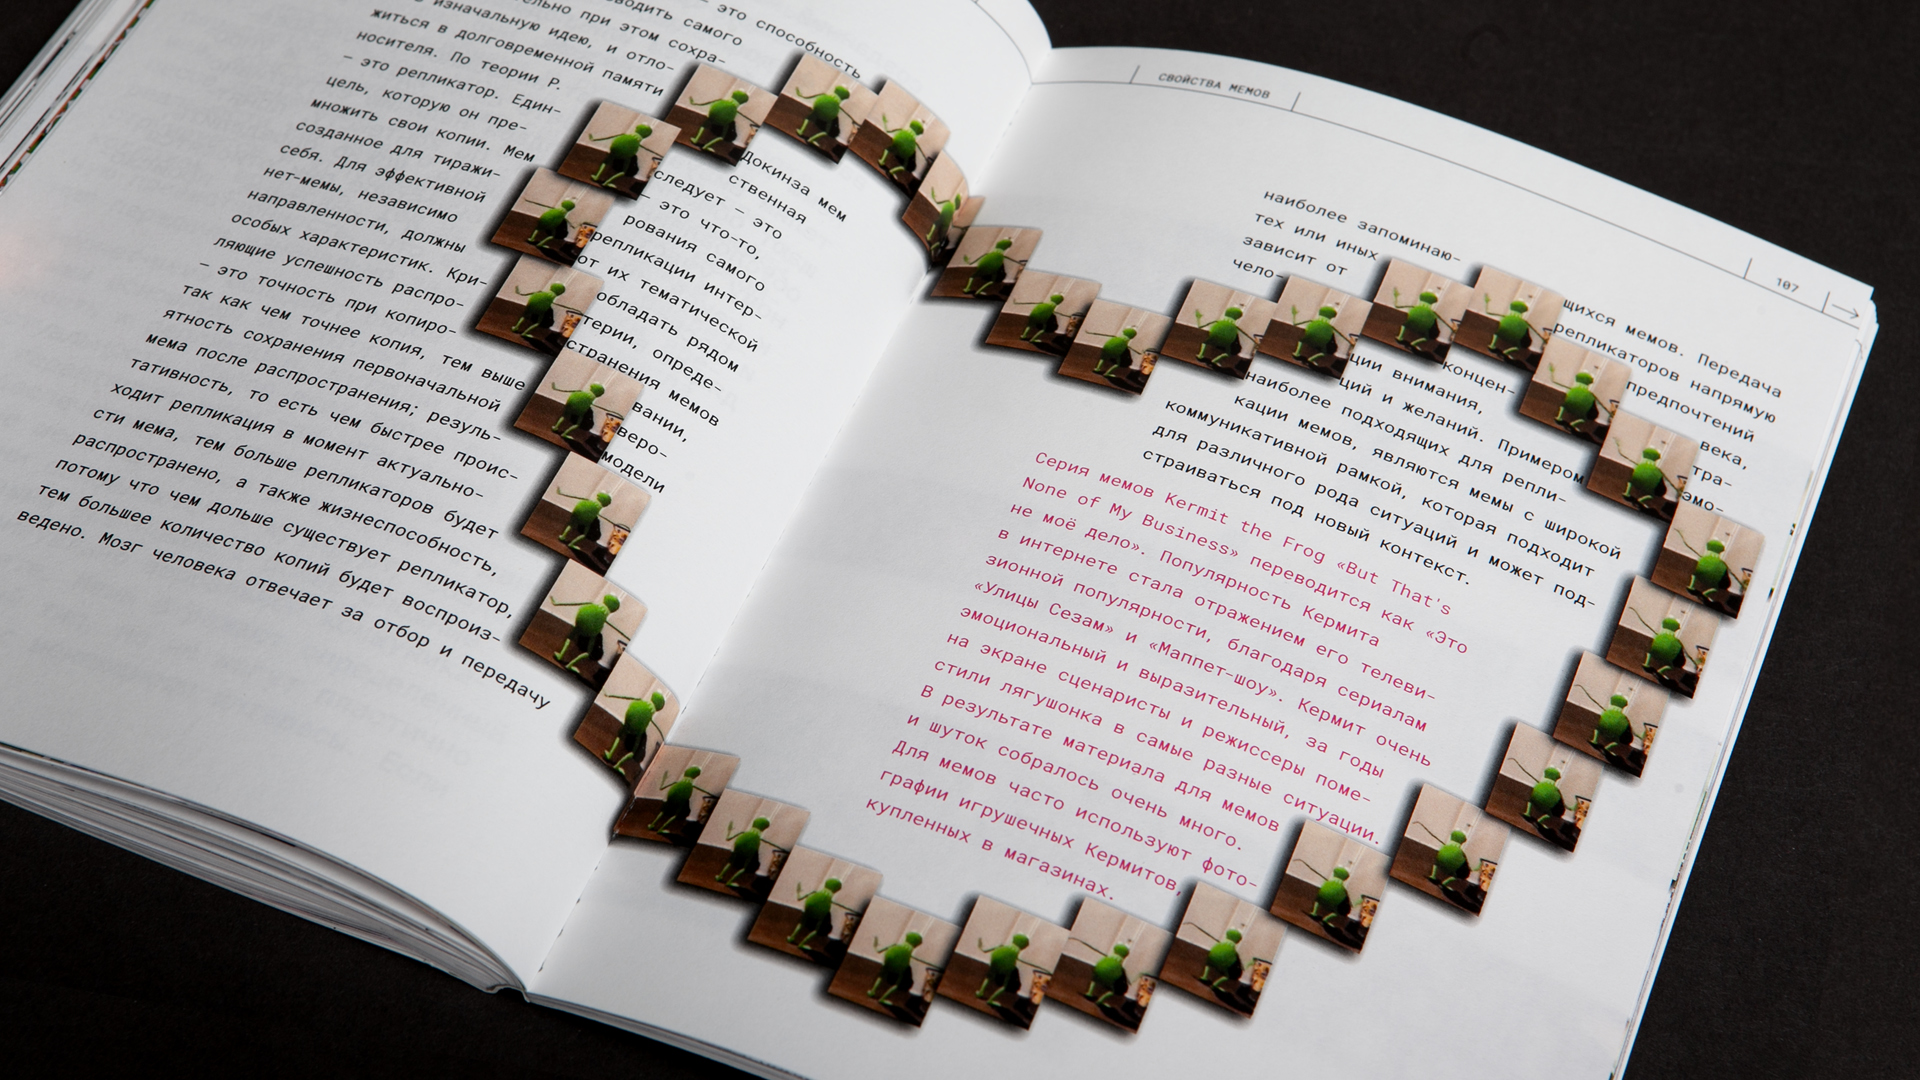 — это способность
водить самого
при этом сохра-
изначальную идею, и отло-
житься в долговременной памяти
носителя. По теории Р. Докинза мем
— это репликатор. Един- ственная
цель, которую он пре- следует — это
множить свои копии. Мем — это что-то,
созданное для тиражи- рования самого
себя. Для эффективной репликации интер-
нет-мемы, независимо от их тематической
направленности, должны обладать рядом
особых характеристик. Кри- терии, опреде-
ляющие успешность распро- странения мемов
— это точность при копиро- вании,
так как чем точнее копия, тем выше веро-
ятность сохранения первоначальной модели
мема после распространения; резуль-
тативность, то есть чем быстрее проис-
ходит репликация в момент актуально-
сти мема, тем больше репликаторов будет
распространено, а также жизнеспособность,
потому что чем дольше существует репликатор,
тем большее количество копий будет воспроиз-
ведено. Мозг человека отвечает за отбор и передачу
СВОЙСТВА МЕМОВ
107
наиболее запоминаю- щихся мемов. Передача
тех или иных репликаторов напрямую
зависит от предпочтений
чело- века,
концен- тра-
ции внимания, эмо-
ций и желаний. Примером
наиболее подходящих для репли-
кации мемов, являются мемы с широкой
коммуникативной рамкой, которая подходит
для различного рода ситуаций и может под-
страиваться под новый контекст.
Серия мемов Kermit the Frog «But That's
None of My Business» переводится как «Это
не моё дело». Популярность Кермита
в интернете стала отражением его телеви-
зионной популярности, благодаря сериалам
«Улицы Сезам» и «Маппет-шоу». Кермит очень
эмоциональный и выразительный, за годы
на экране сценаристы и режиссеры поме-
стили лягушонка в самые разные ситуации.
В результате материала для мемов
и шуток собралось очень много.
Для мемов часто используют фото-
графии игрушечных Кермитов,
купленных в магазинах.